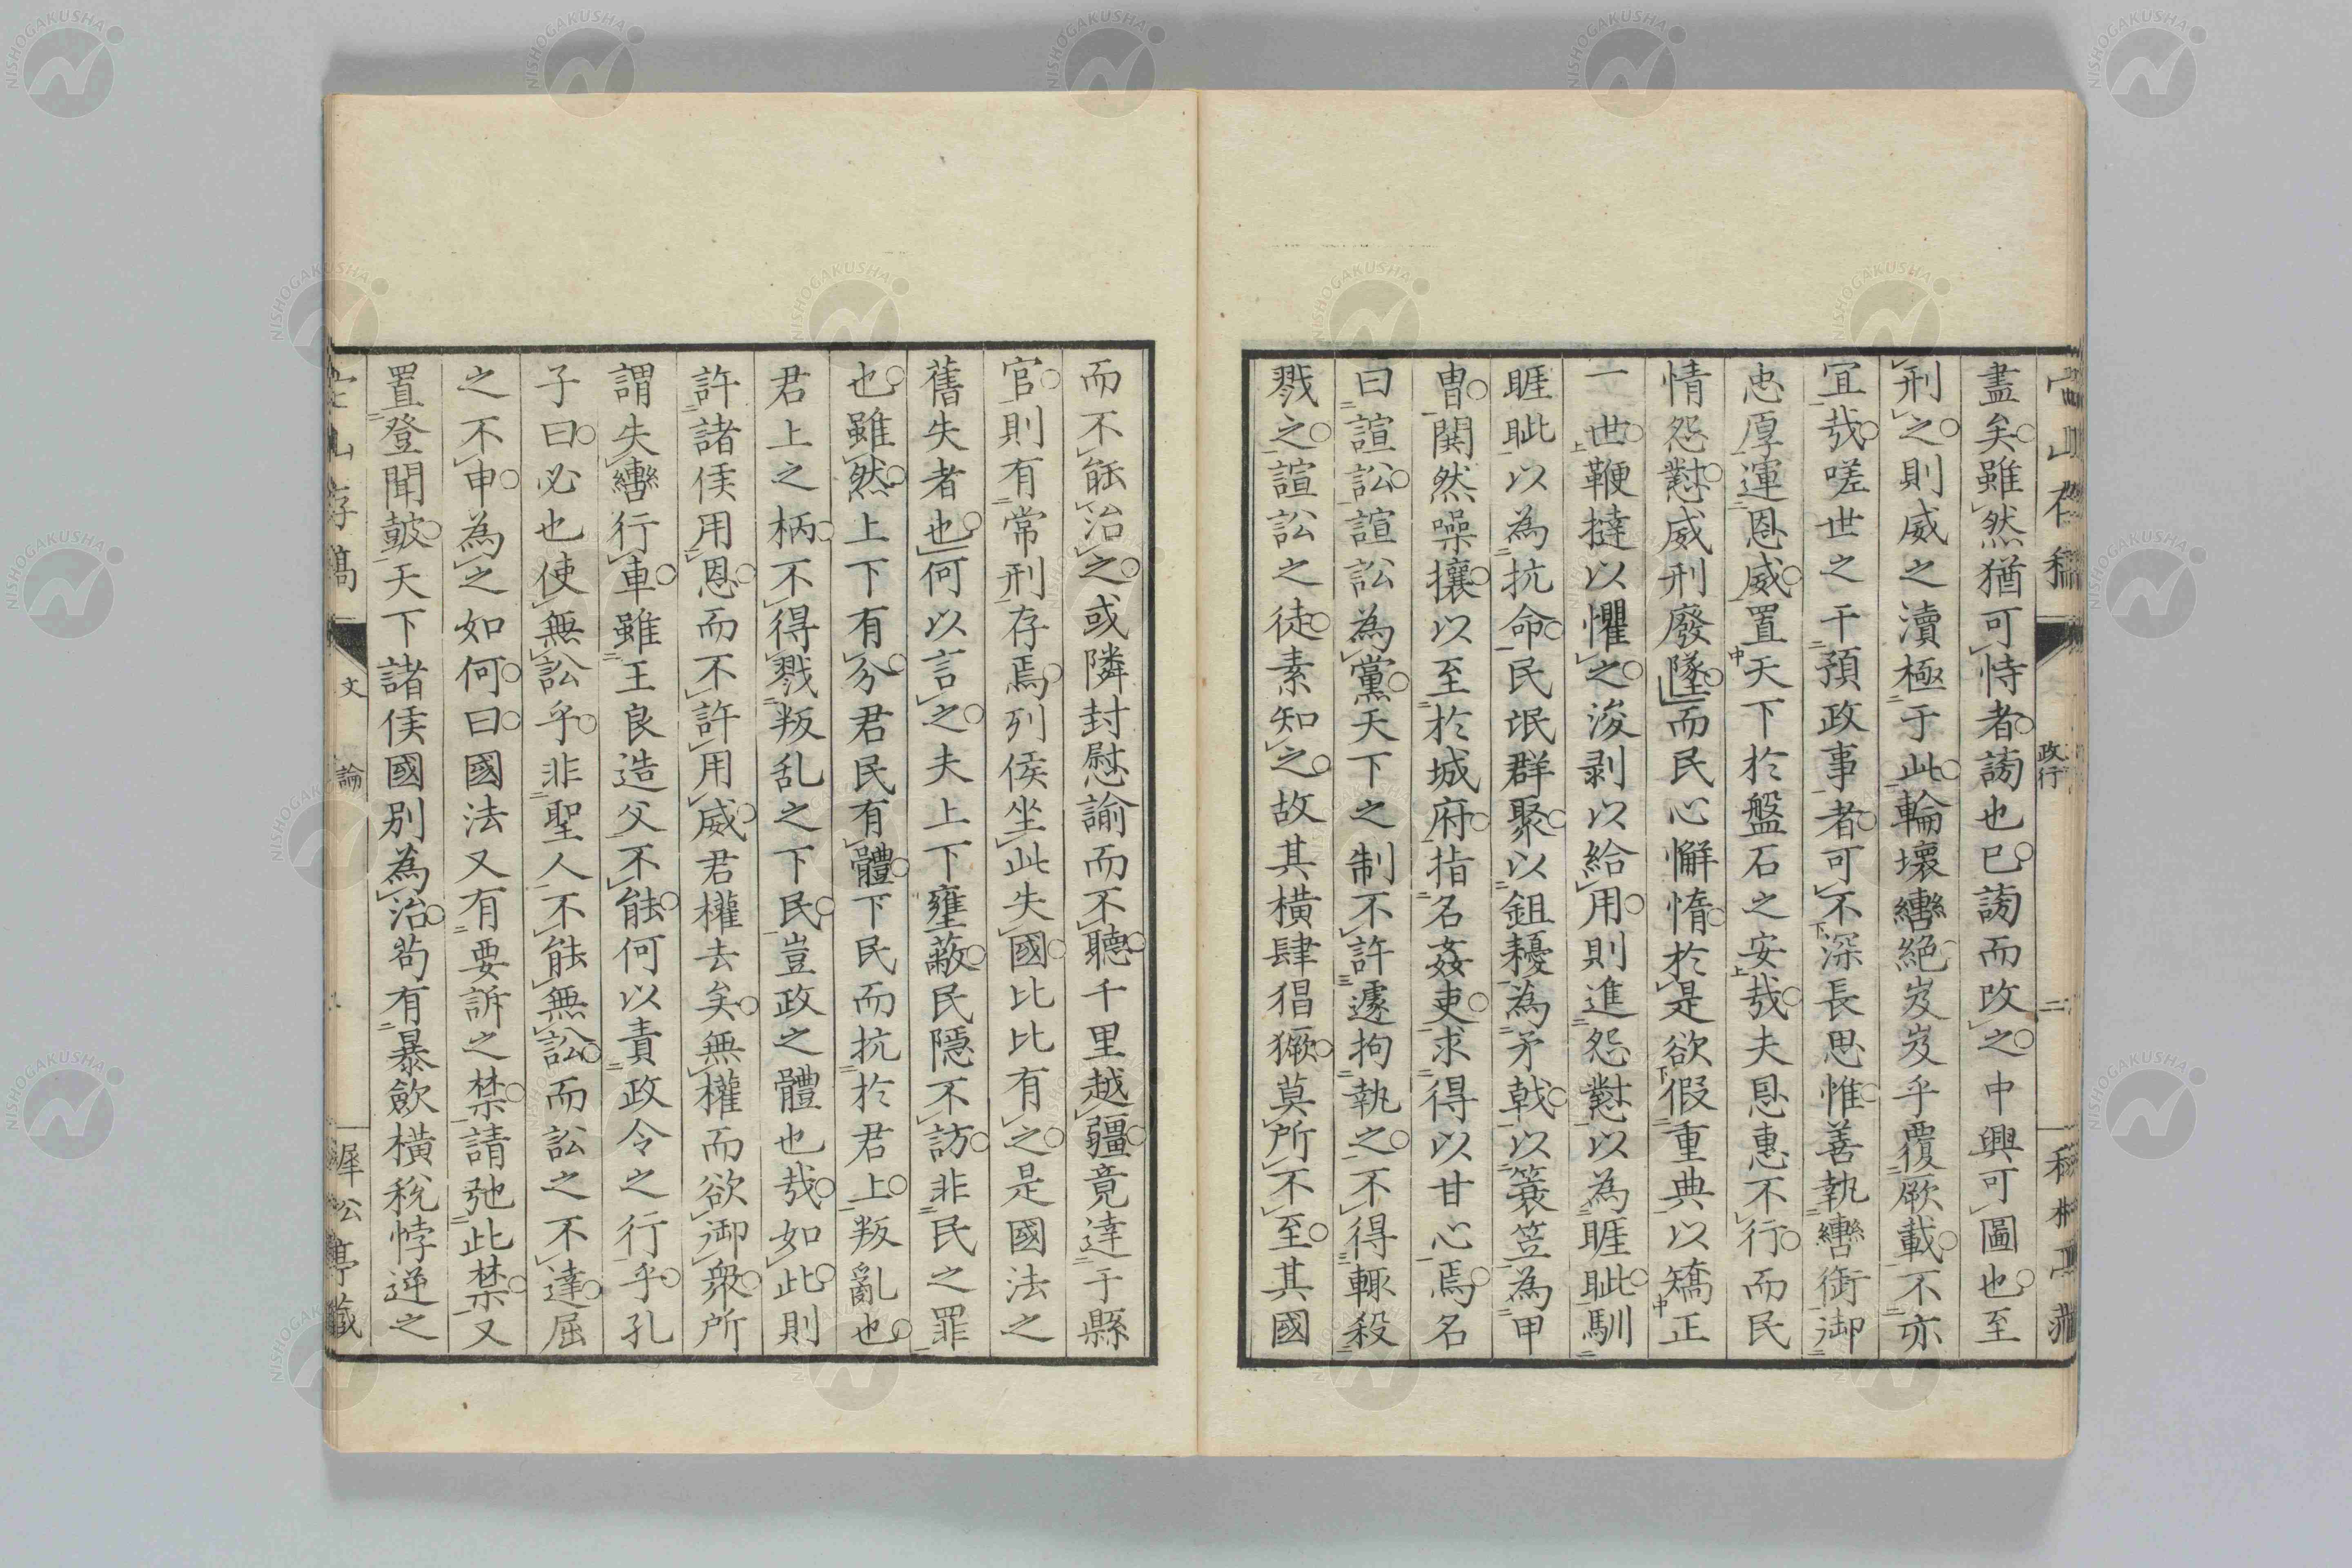 政行
二
盡矣雖然猶可恃者謗也已謗而改之中興可圖也至
刑之則威之瀆極于此輪壞轡絕岌岌乎覆厥載不亦
宜哉嗟世之干預政事者可不深長思惟善執轡銜御
忠厚運恩威置天下於盤石之安哉夫恩惠不行而民
情怨懟威刑廢墜而民心懈惰於是欲假重典以矯正
一世鞭撻以懼之浚剥以給用則進怨懟以為睚眦馴
睚眦以為抗命民氓群聚以鉏耰為矛戟以簑笠為甲
冑鬨然噪攘以至於城府指名姦吏求得以甘心焉名
曰諠訟諠訟為黨天下之制不許遽拘執之不得輒殺
戮之諠訟之徒素知之故其横肆猖獗莫所不至其國
而不能治之或隣封慰諭而不聽千里越疆竟達于縣
官則有常刑存焉列侯坐此失國比比有之是國法之
舊失者也何以言之夫上下壅蔽民隱不訪非民之罪
也雖然上下有分君民有體下民而抗於君上叛亂也
君上之柄不得戮叛乱之下民豈政之體也哉如此則
許諸侯用恩而不許用威君權去矣無權而欲御衆所
謂失轡行車雖王良造父不能何以責政令之行乎孔
子曰必也使無訟乎非聖人不能無訟而訟之不達屈
之不申為之如何曰國法又有要訴之禁請弛此禁又
置登聞皷天下諸侯國別為治苟有暴斂横稅悖逆之
文
論
犀公亭藏